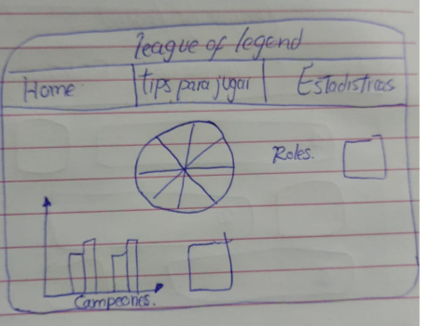 league of legend
Home tips para jugar Estadisticas
Roles.
Campeones.